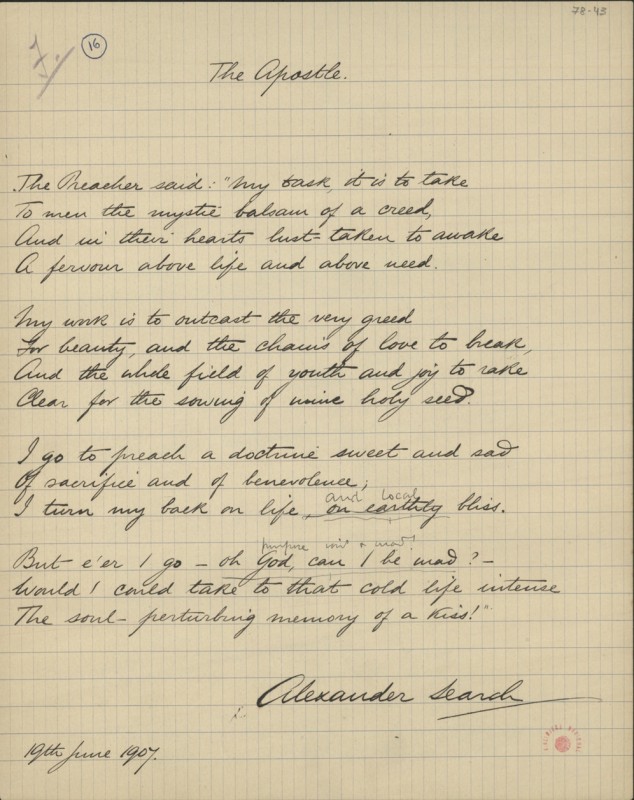 78-43
7.
16
The Apostle.
The Preacher said: "My task, it is to take
To men the mystic balsam of a creed,
And in their hearts lust-taken to awake
A fervour above life and above need.
My work is to outcast the very greed
For beauty, and the chains of love to break,
And the whole field of youth and joy to rake
Clear for the sowing of mine holy seed.
I go to preach a doctrine sweet and sad
Of sacrifice and of benevolence;
and local
I turn my back on life, on earthly bliss.
purpose
But e'er I go — oh God, can I be mad? —
Would I could take to that cold life intense
The soul-perturbing memory of a kiss!"
Alexander Search
19th June 1907.